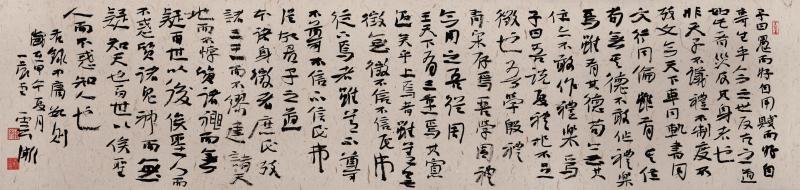 子曰愚而好自用賤而好自
專生乎今之世反古之道
如此者災及其身者也
非天子不議禮不制度不
考文今天下車同軌書同
文行同倫雖有其位
苟無其德不敢作禮樂
焉雖有其德苟無其
位亦不敢作禮樂焉
子曰吾說夏禮杞不足
徵也吾學殷禮
有宋存焉吾學周禮
今用之吾從周
王天下有三重焉其寡
過矣乎上焉者雖善無
徵無徵不信不信民弗
從下焉者雖善不尊
不尊不信不信民弗
從故君子之道
本諸身徵諸庶民考
諸三王而不謬建諸天
地而不悖質諸鬼神而無
疑百世以俟聖人而
不惑質諸鬼神而無
疑知天也百世以俟聖
人而不惑知人也
數則
歲在甲午五月